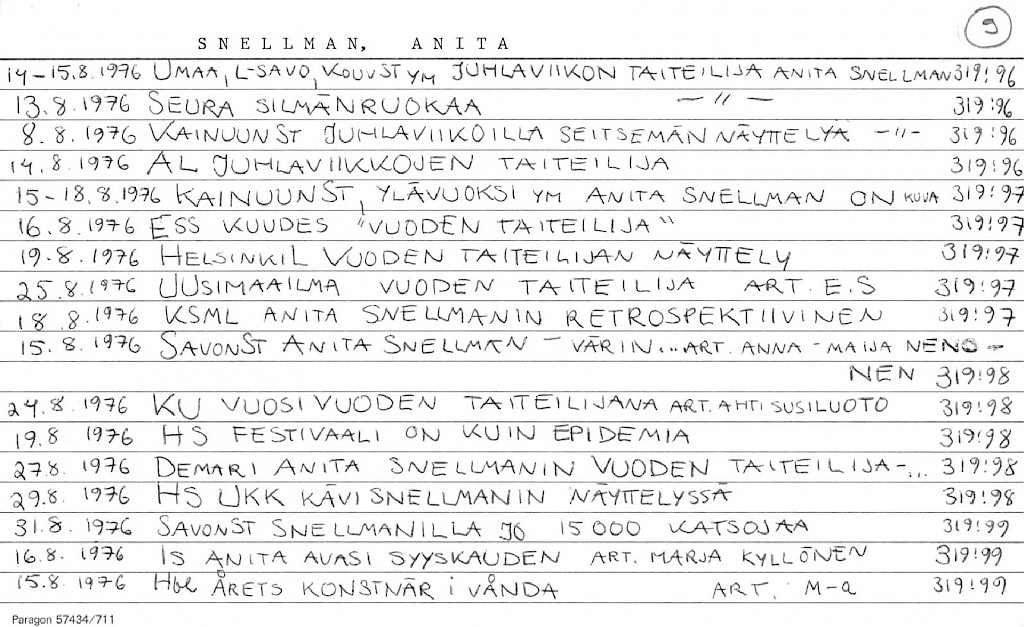 9
SNELLMAN, ANITA
14-15.8.1976 UMAA, L-SAVO, KOUVST YM JUHLAVIIKON TAITEILIJA ANITA SNELLMAN 319:96
13.8.1976 SEURA SILMÄNRUOKAA -"- 319:96
8.8.1976 KAINUUNST JUHLAVIIKOILLA SEITSEMÄN NÄYTTELYÄ -"- 319:96
14.8.1976 AL JUHLAVIIKKOJEN TAITEILIJA 319:96
15-18.8.1976 KAINUUNST, YLÄVUOKSI YM ANITA SNELLMAN ON KUVA 319:97
16.8.1976 ESS KUUDES "VUODEN TAITEILIJA" 319:97
19.8.1976 HELSINKIL VUODEN TAITEILIJAN NÄYTTELY 319:97
25.8.1976 UUSIMAAILMA VUODEN TAITEILIJA ART. E.S 319:97
18.8.1976 KSML ANITA SNELLMANIN RETROSPEKTIIVINEN 319:97
15.8.1976 SAVONST ANITA SNELLMAN - VÄRIN... ART. ANNA-MAIJA NENO-
NEN 319:98
24.8.1976 KU VUOSI VUODEN TAITEILIJANA ART. AHTI SUSILUOTO 319:98
19.8 1976 HS FESTIVAALI ON KUIN EPIDEMIA 319:98
27.8. 1976 DEMARI ANITA SNELLMANIN VUODEN TAITEILIJA-... 319:98
29.8. 1976 HS UKK KÄVI SNELLMANIN NÄYTTELYSSÄ 319:98
31.8. 1976 SAVONST SNELLMANILLA JO 15000 KATSOJAA 319:99
16.8. 1976 IS ANITA AVASI SYYSKAUDEN ART. MARJA KYLLÖNEN 319:99
15.8. 1976 Hbl ÅRETS KONSTNÄR I VÅNDA ART. M-a 319:99
Paragon 57434/711